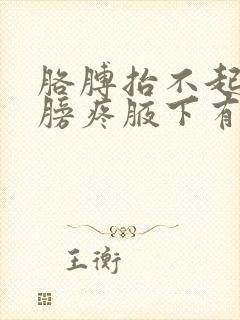 胳膊抬不起
膀疼腋下有
王衡